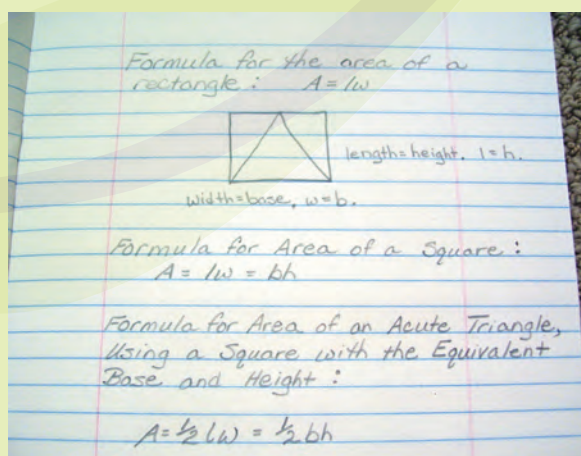 Formula for the area of a
rectangle: A = lw
length=height. l=h.
width=base, w=b.
Formula for Area of a Square:
A = lw = bh
Formula for Area of an Acute Triangle,
Using a Square with the Equivalent
Base and Height:
A=½lw = ½bh